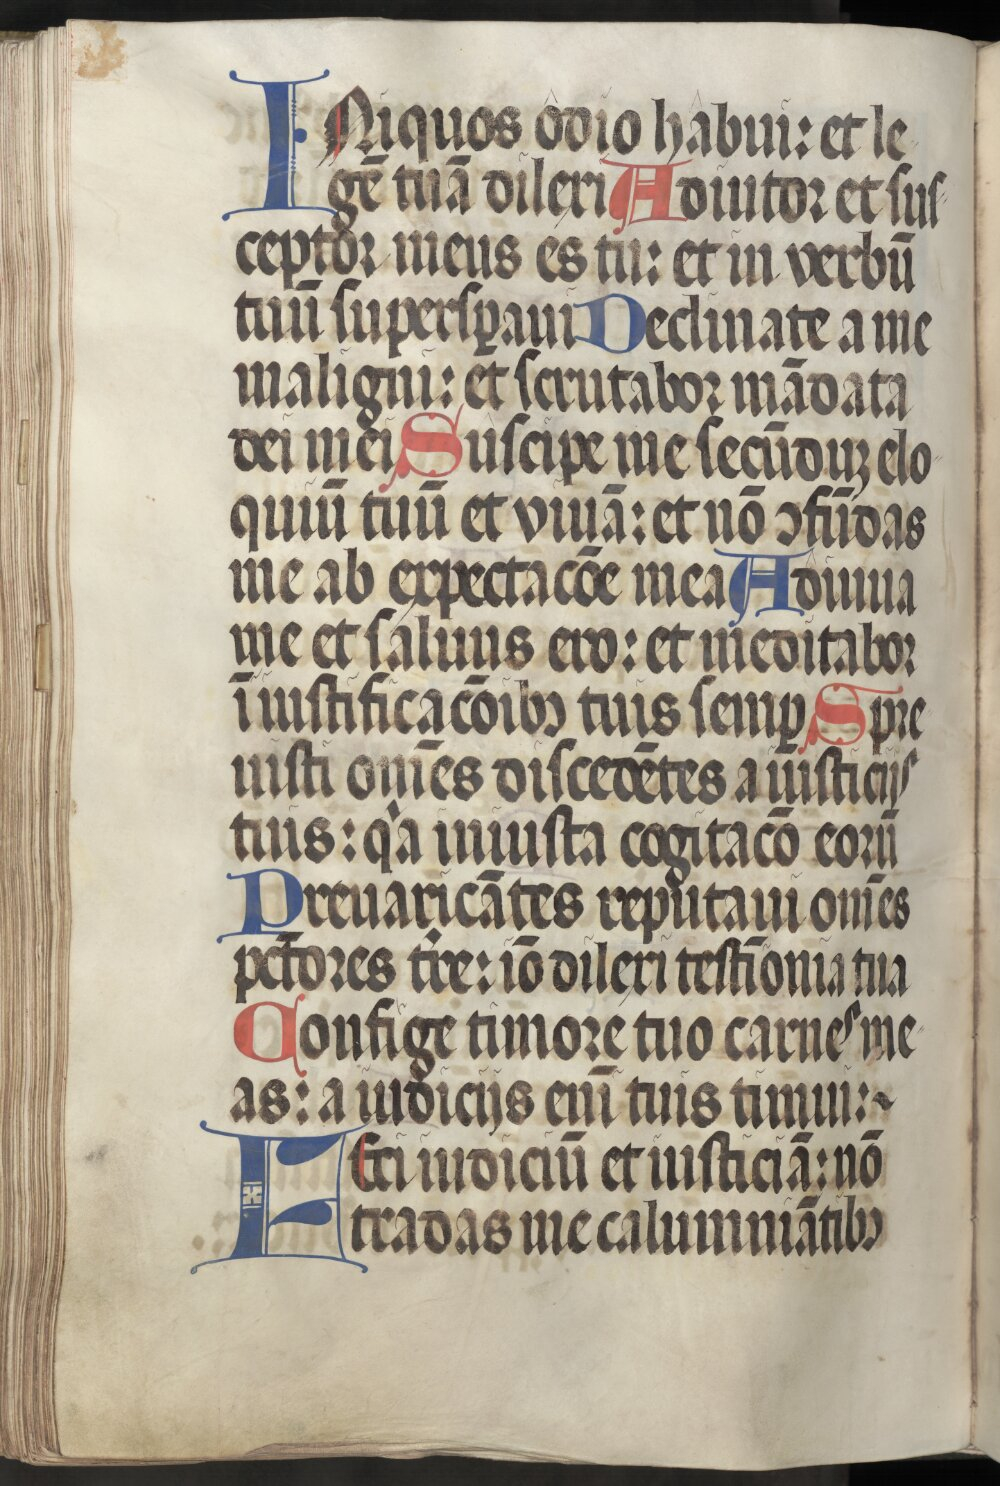 INiquos odio habui: et le-
gē tuā dilexi Adiutor et sus-
ceptor meus es tu: et in verbū
tuū superspaui Declinate a me
maligni: et scrutabor mādata
dei mei Suscipe me secūduꝫ elo-
quiū tuū et viuā: et nō ↄfūdas
me ab expectacōe mea Adiuua
me et saluus ero: et meditabor
ī iustificacōibꝫ tuis semꝑ Spre-
uisti oēs discedētes a iusticijs
tuis: qͥa iniusta cogitacō eorū
Preuaricātes reputaui om̄es
pctōres tͬre: iō dilexi testīonia tua
Confige timore tuo carnes me-
as: a iudicijs enī tuis timui:~
FEci iudiciū et iusticiā: nō
tradas me calumniātibꝫ